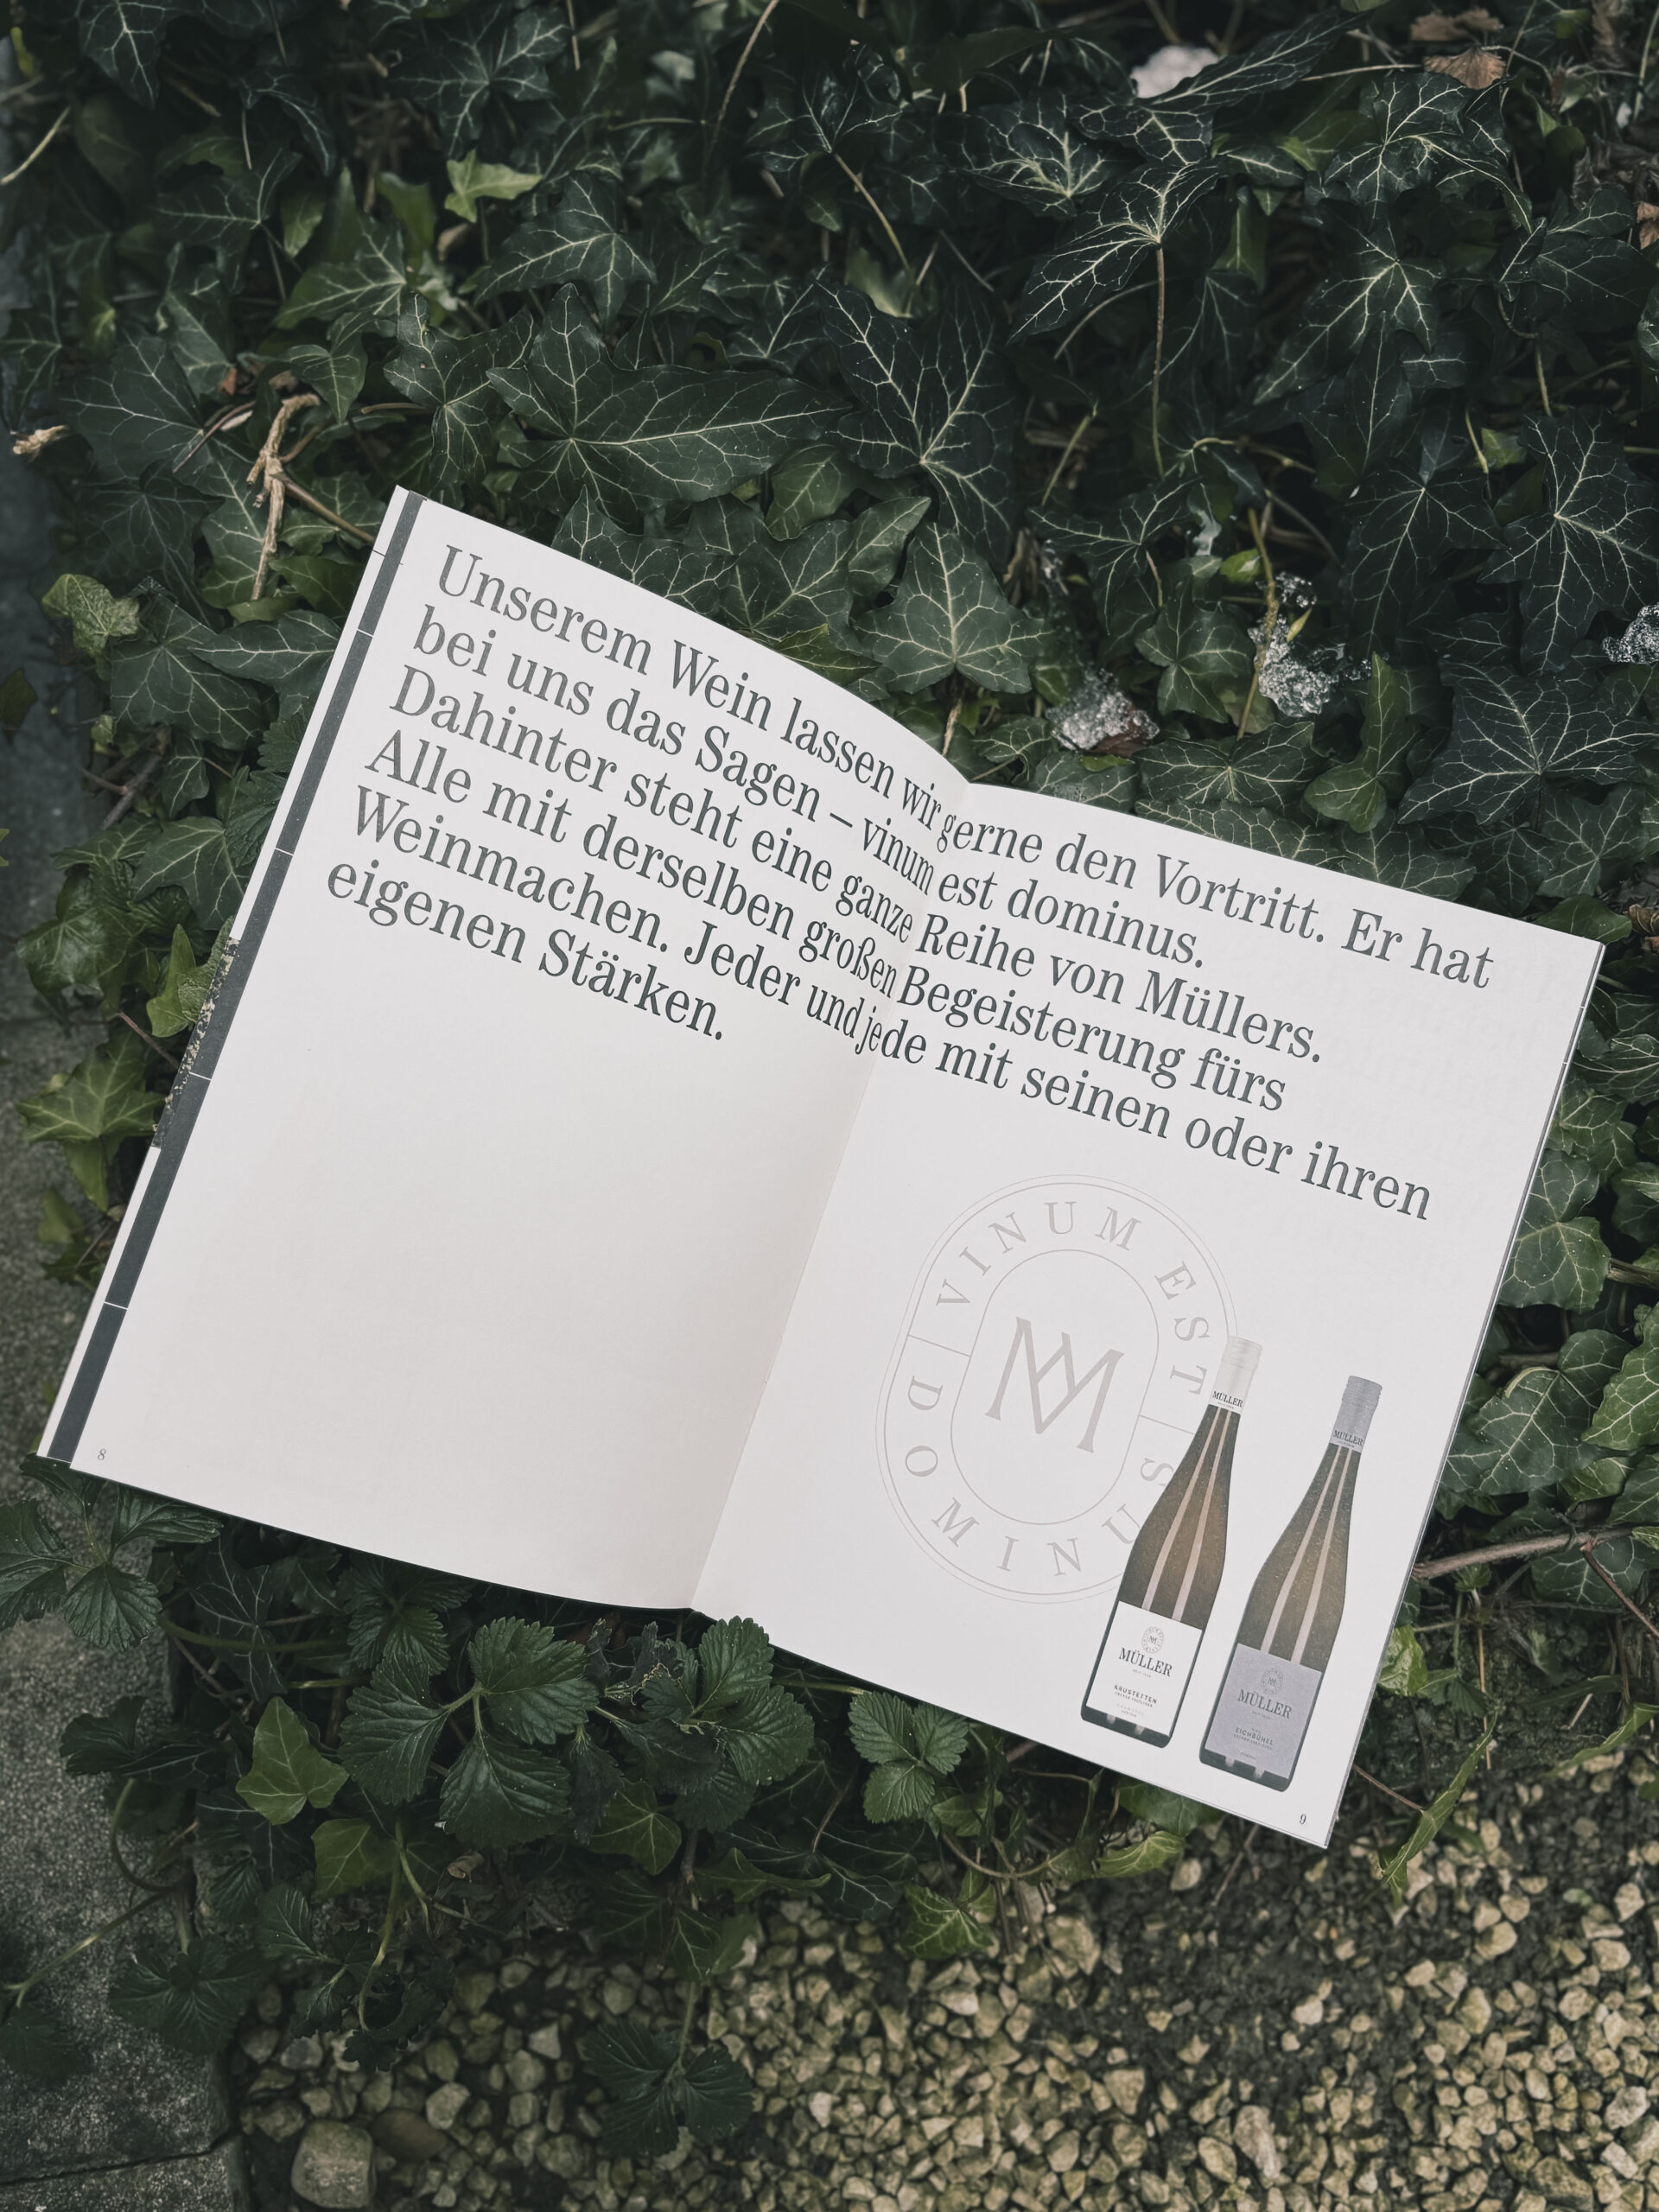 Unserem Wein lassen wir gerne den Vortritt. Er hat
bei uns das Sagen – vinum est dominus.
Dahinter steht eine ganze Reihe von Müllers.
Alle mit derselben großen Begeisterung fürs
Weinmachen. Jeder und jede mit seinen oder ihren
eigenen Stärken.
VINUM EST
DOMINUS
M
MÜLLER
MÜLLER
MÜLLER
KRUSTETTEN
MÜLLER
EICHBÜHEL
8
9